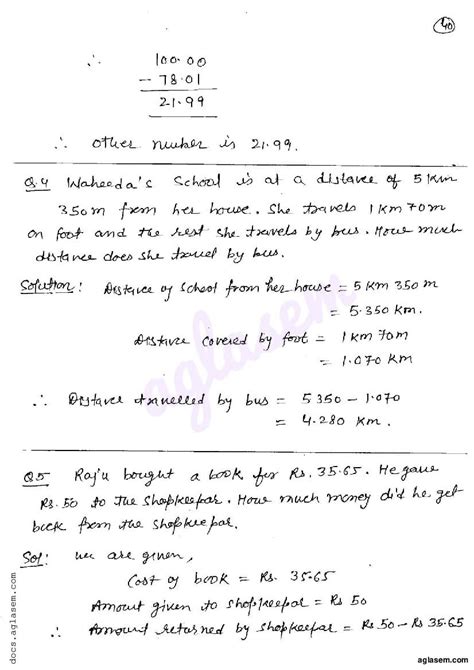 40
∴ 100.00
- 78.01
21.99
∴ other number is 21.99.
Q.4 Waheeda's School is at a distance of 5 km
350m from her house. She travels 1 km 70m
on foot and the rest she travels by bus. How much
distance does she travel by bus.
Solution: Distance of School from her house = 5 km 350 m
= 5.350 km.
Distance covered by foot = 1 km 70m
= 1.070 km
∴ Distance travelled by bus = 5.350 - 1.070
= 4.280 km.
Q5 Raju bought a book for Rs. 35.65. He gave
Rs. 50 to the shopkeepar. How much money did he get
back from the shopkeepar.
Sol: we are given,
Cost of book = Rs. 35.65
Amount given to shopkeepar = Rs 50
∴ Amount returned by shopkeepar = Rs 50 - Rs 35.65
aglasem
docs.aglasem.com
aglasem.com